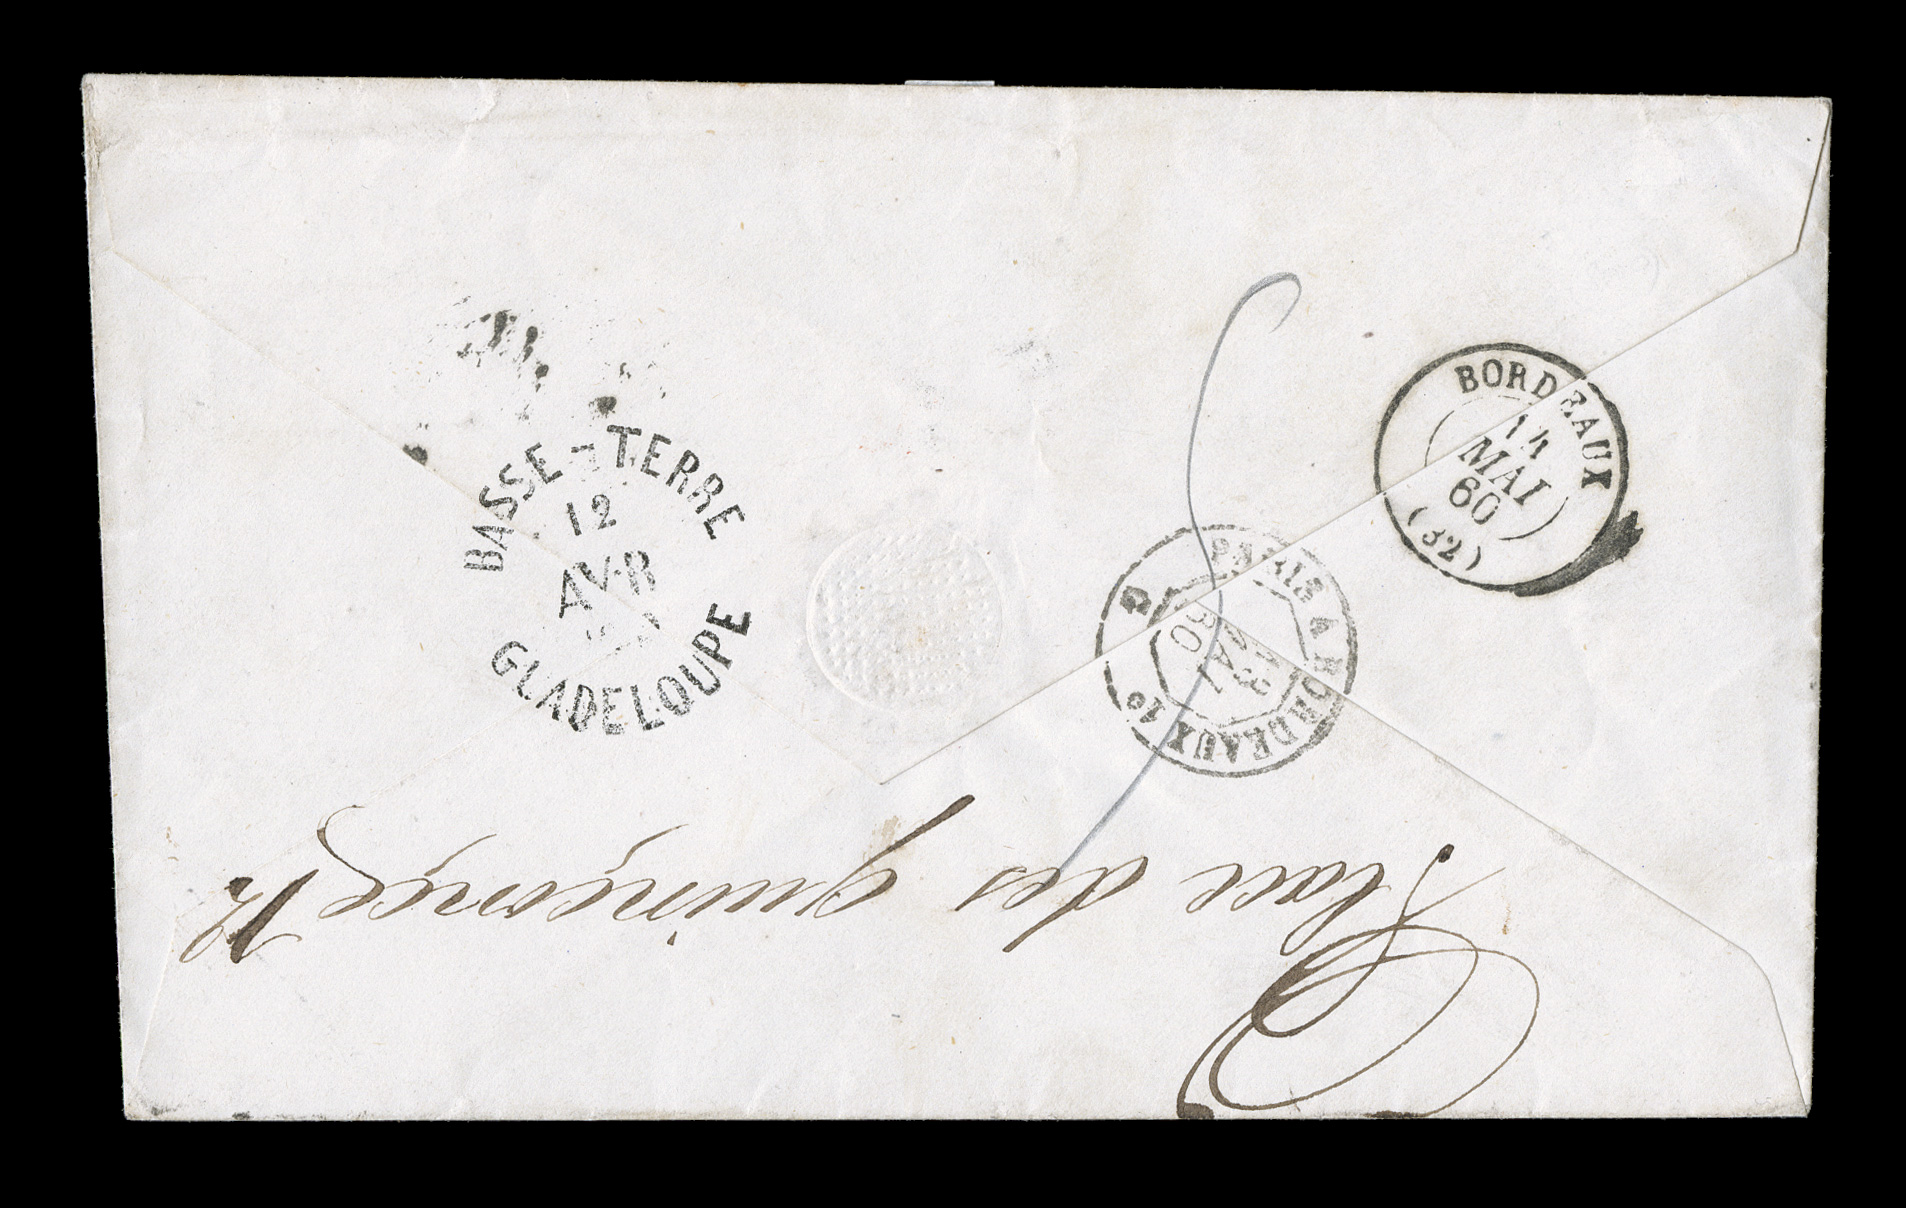 BASSE-TERRE
12
AVR
GUADELOUPE
BORDEAUX
14
MAI
60
(32)
PARIS A BORDEAUX 1º
13
MAI
60
Place des quinconçe